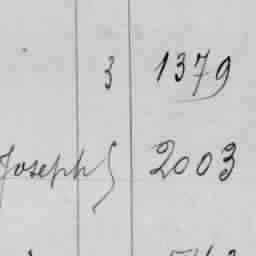 3 1379
Joseph 2003